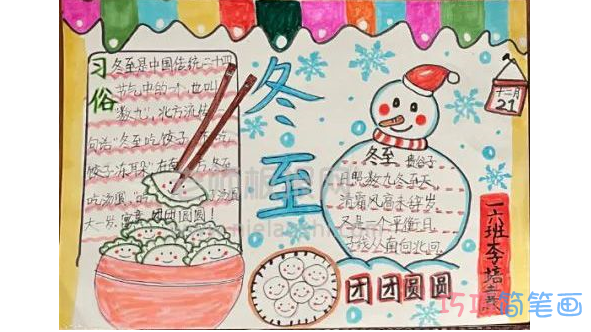 习俗
冬至是中国传统二十四
节气中的一个,也叫
"数九",北方流传
句话"冬至吃饺子
饺子冻耳朵"
吃汤圆
大一岁
团团圆圆!
冬至
冬至
月照数九冬至天,
清霜风高未辞岁,
又是一个平衡日,
子孩从南向北回
十二月
21
团团圆圆
一六班李培
巧巧简笔画